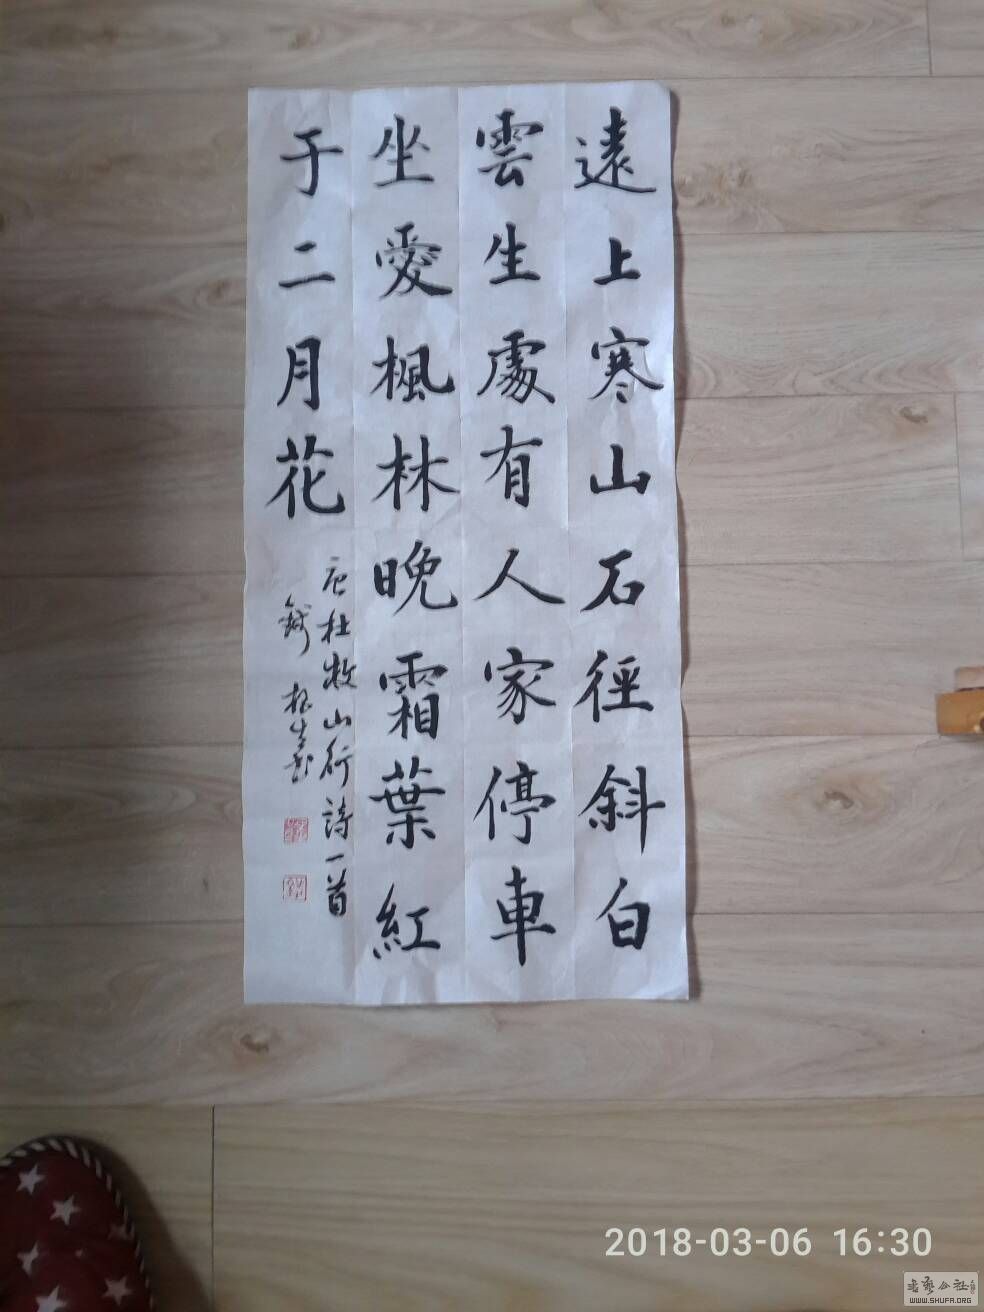 遠上寒山石徑斜白
雲生處有人家停車
坐愛楓林晚霜葉紅
于二月花
唐杜牧山行詩一首
2018-03-06 16:30
WWW.SHUFA.ORG